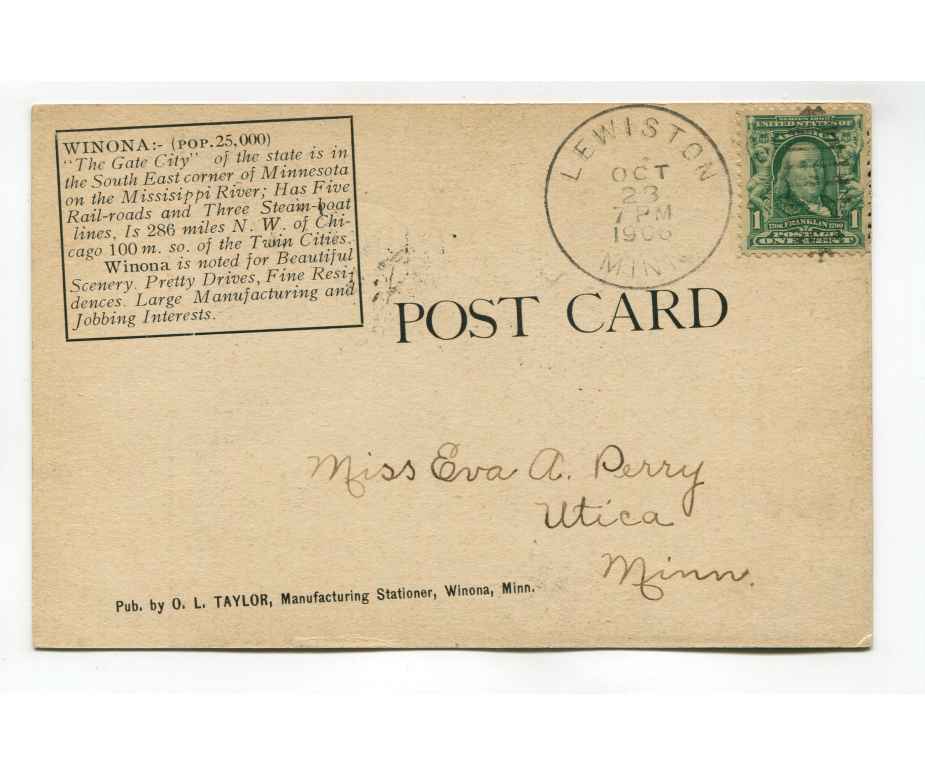 WINONA:- (POP. 25,000)
"The Gate City" of the state is in
the South East corner of Minnesota
on the Missisippi River; Has Five
Rail-roads and Three Steam-boat
lines, Is 286 miles N. W. of Chi-
cago 100 m. so. of the Twin Cities.
Winona is noted for Beautiful
Scenery. Pretty Drives, Fine Resi-
dences. Large Manufacturing and
Jobbing Interests.
LEWISTON
OCT
23
7 PM
1906
MINN
SERIES 1902
UNITED STATES OF
AMERICA
1 1
1706 FRANKLIN 1790
POSTAGE
ONE CENT
POST CARD
Miss Eva A. Perry
Utica
Minn.
Pub. by O. L. TAYLOR, Manufacturing Stationer, Winona, Minn.